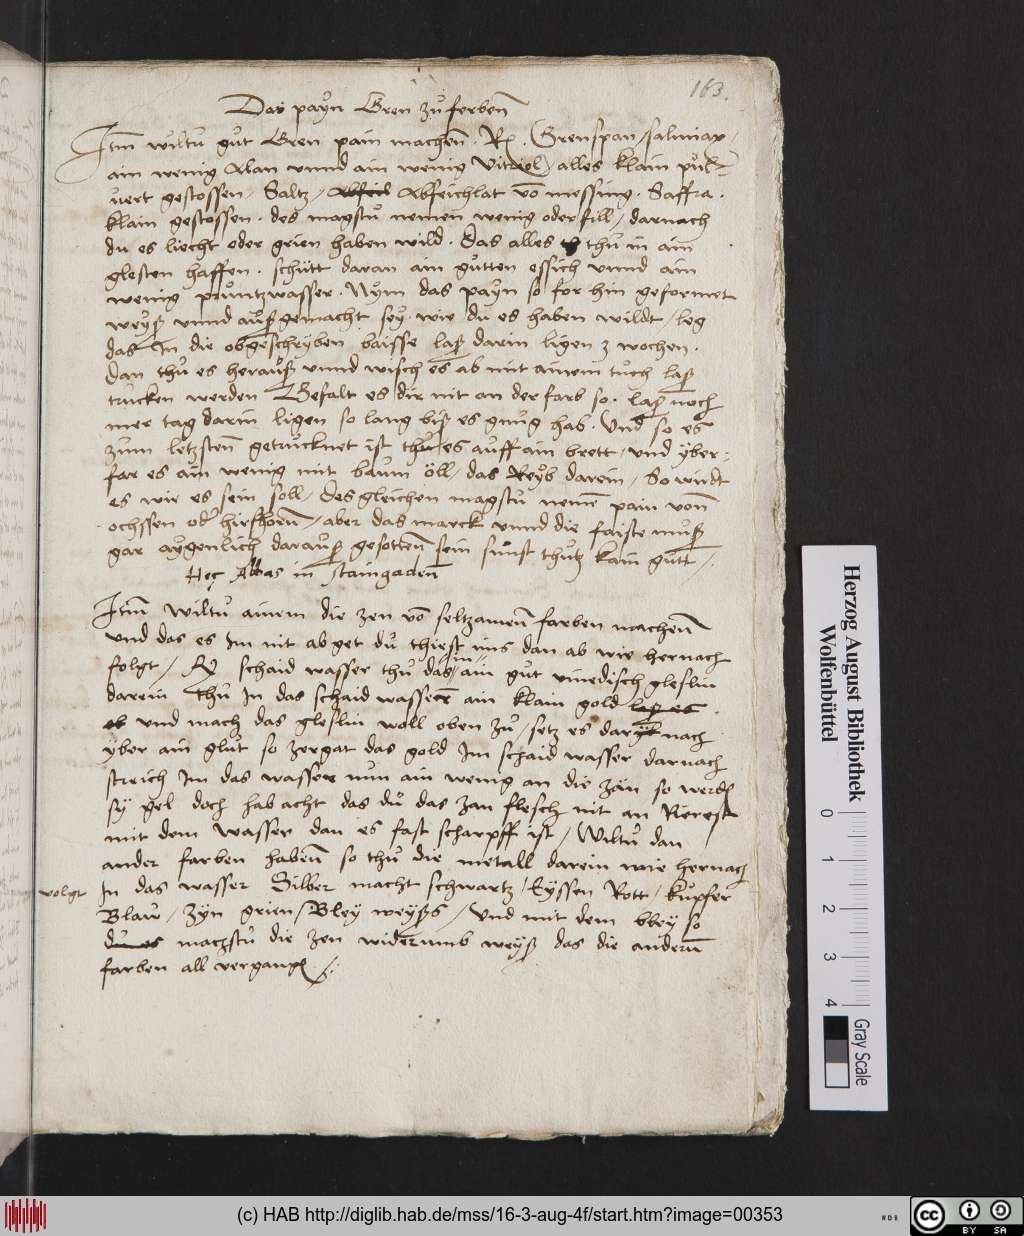 163.
Das payn Gren zu ferben
Itm wiltu gut Gren pain machen . Rx . Grenspan / salmiax /
ain wenig Alan vnnd ain wenig vitriol / alles klain pul-
uert gestossen / Saltz / Abfeichlat vō messing . Saffra .
klain gestossen . des magstu nemen wenig oder fill / darnach
du es liecht oder grien haben wild . Das alles thu in ain
glesten haffen . schütt daran ain gutten essich vnnd ain
wenig pruntzwasser . Nym das payn so for hin geformet
weyß vnnd außgemacht sey . wie du es haben wildt / leg
das In die obgeschryben baisse laß darin ligen 3 wochen .
Dan thu es herauß vnnd wisch es ab mit ainem tuch laß
trucken werden Gefalt es dir nit an der farb so . laß noch
mer tag darin ligen so lang biß es gnug hab . Vnd so es
zum letzsten getrucknet ist thu es auff ain brett / vnd yber-
far es ain wenig mit baum öll / das Reyb darein / So wirdt
es wie es sein soll / Desgleichen magstu nemē pain vonn
ochssen odr hirshorn / aber das marck vnnd die faiste muß
gar aygenlich darauß gesotten sein sunst thutz kain gutt /.
Hec Abbas in staingaden
Itm wiltu ainem die zen vō seltzamen farben machenn
vnd das es Im nit ab get du thiest ims dan ab wie hernach
folgt / Rx schaid wasser thu das in ain gut vinedisch gleslin
darein thu In das schaid wasser ain klain gold
vnd mach das gleslin woll oben zu / setz es darnach
yber ain glut so zergat das gold Im schaid wasser darnach
streich Im das wasser nun ain wenig an die zän so werdē
sy gel doch hab acht das du das zan flesch nit an Rierest
mit dem wasser dan es fast scharpff ist / Wiltu dan
ander farben haben so thu die metall darein wie hernach
volgt In das wasser Silber macht schwartz / Eyssen Rott / kupfer
Blaw / Zyn grien / Bley weyßs / Vnd mit dem bley so
machstu die zen widerumb weyß das die andern
farben all vergangē /.
Herzog August Bibliothek
Wolfenbüttel
0 1 2 3 4
Gray Scale
(c) HAB http://diglib.hab.de/mss/16-3-aug-4f/start.htm?image=00353
WDB
cc BY SA